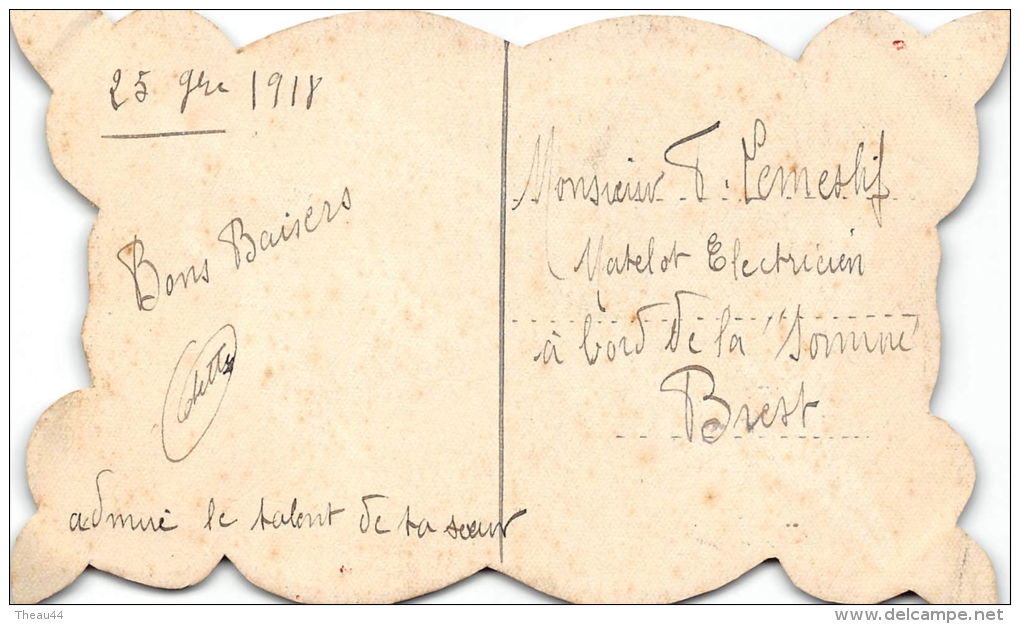 25 9bre 1918
Bons Baisers
Odette
admire le talent de ta sœur
Monsieur P. Lemeslif
Matelot Electricien
à bord de la "Somme"
Brest
Theau44
www.delcampe.net